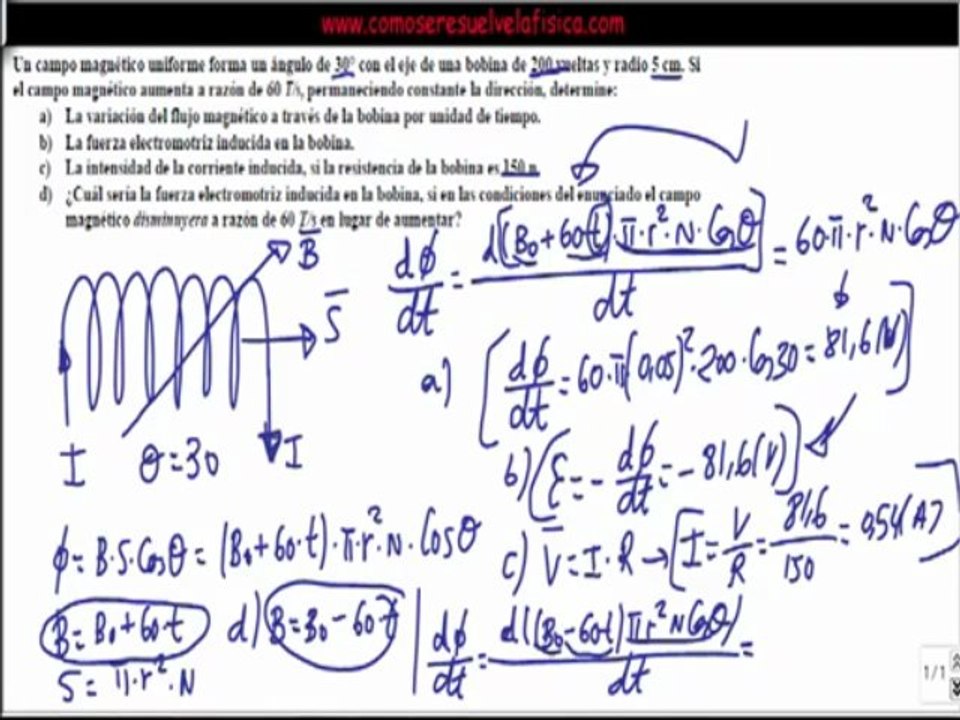 www.comoseresuelvelafisica.com
Un campo magnético uniforme forma un ángulo de 30° con el eje de una bobina de 200 vueltas y radio 5 cm. Si
el campo magnético aumenta a razón de 60 T/s, permaneciendo constante la dirección, determine:
a) La variación del flujo magnético a través de la bobina por unidad de tiempo.
b) La fuerza electromotriz inducida en la bobina.
c) La intensidad de la corriente inducida, si la resistencia de la bobina es 150 Ω.
d) ¿Cuál sería la fuerza electromotriz inducida en la bobina, si en las condiciones del enunciado el campo
magnético disminuyera a razón de 60 T/s en lugar de aumentar?
B
S
I θ=30 I
dϕ/dt = d[(B₀+60t)·π·r²·N·Cosθ]/dt = 60·π·r²·N·Cosθ
a) [dϕ/dt = 60·π(0,05)²·200·Cos30 = 81,6(V)]
b) (ε = - dϕ/dt = - 81,6(V))
c) V = I·R → [I = V/R = 81,6/150 = 0,54(A)]
ϕ = B·S·Cosθ = (B₀+60·t)·π·r²·N·Cosθ
B = B₀+60·t
S = π·r²·N
d) B = B₀-60t
dϕ/dt = d((B₀-60t)πr²NCosθ)/dt =
1/1